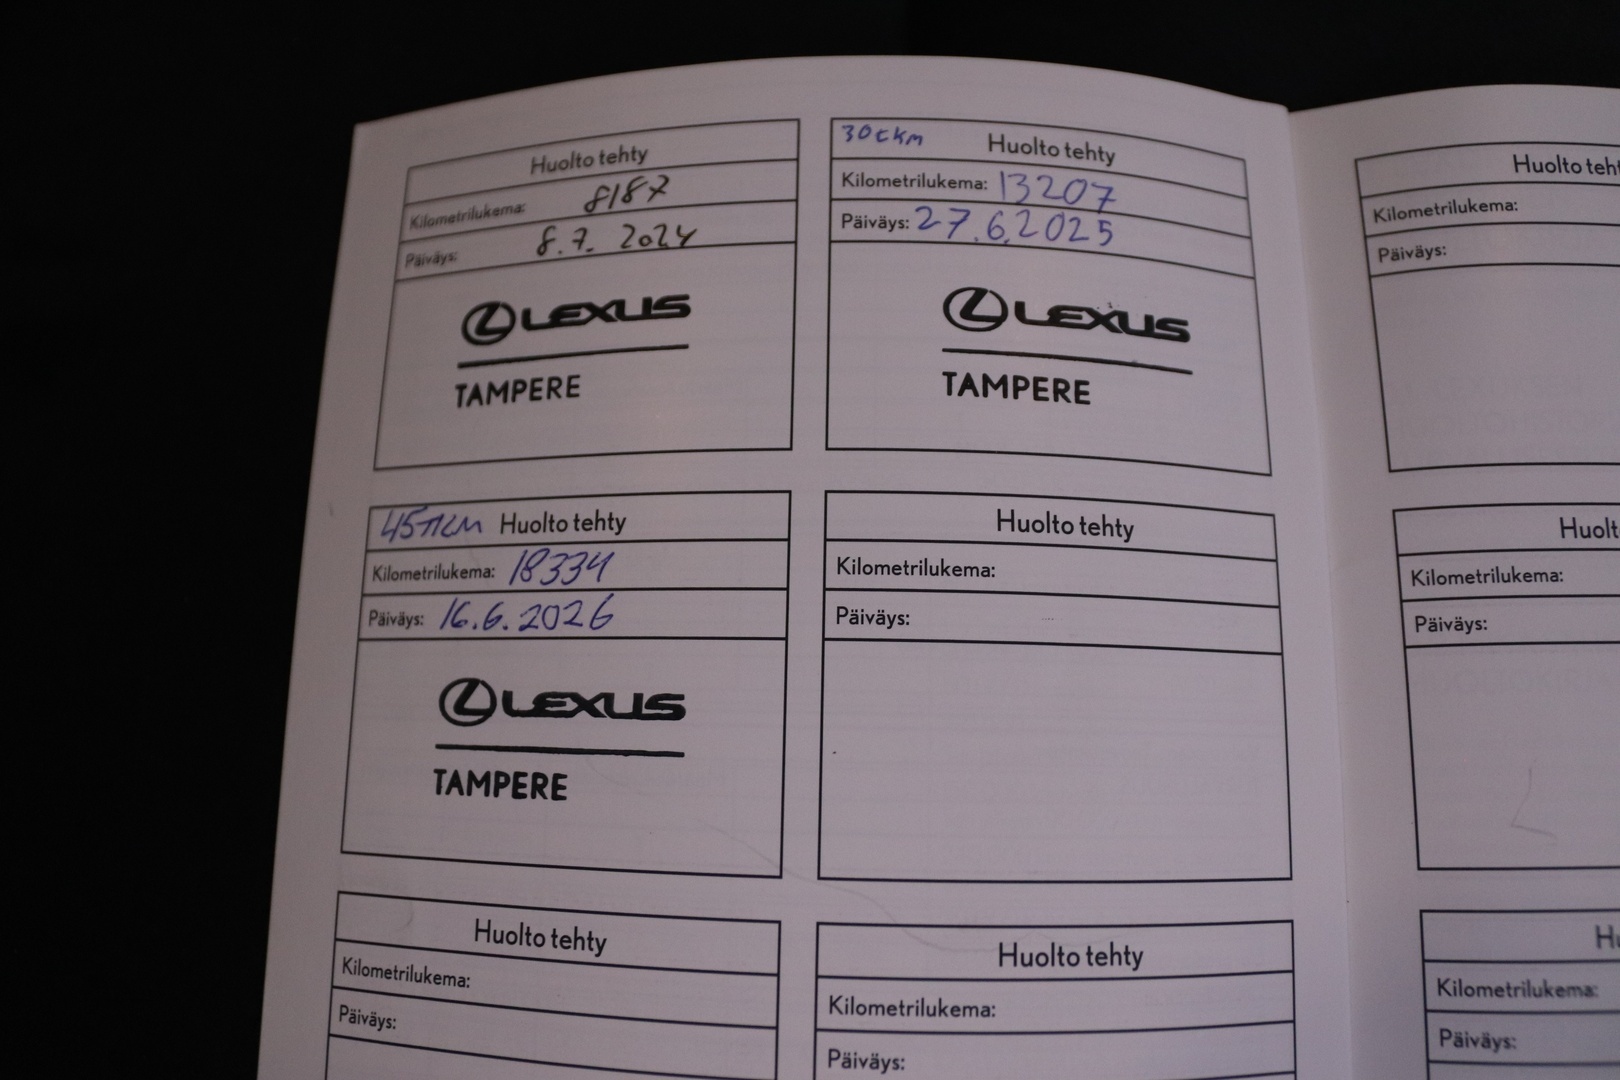 Huolto tehty
Kilometrilukema: 8187
Päiväys: 8.7. 2024
LEXUS
TAMPERE
30tkm Huolto tehty
Kilometrilukema: 13207
Päiväys: 27.6.2025
LEXUS
TAMPERE
45TKM Huolto tehty
Kilometrilukema: 18334
Päiväys: 16.6.2026
LEXUS
TAMPERE
Huolto tehty
Kilometrilukema:
Päiväys:
Huolto tehty
Kilometrilukema:
Päiväys:
Huolto tehty
Kilometrilukema:
Päiväys:
Huolto teht
Kilometrilukema:
Päiväys:
Huolt
Kilometrilukema:
Päiväys:
Hu
Kilometrilukema:
Päiväys: